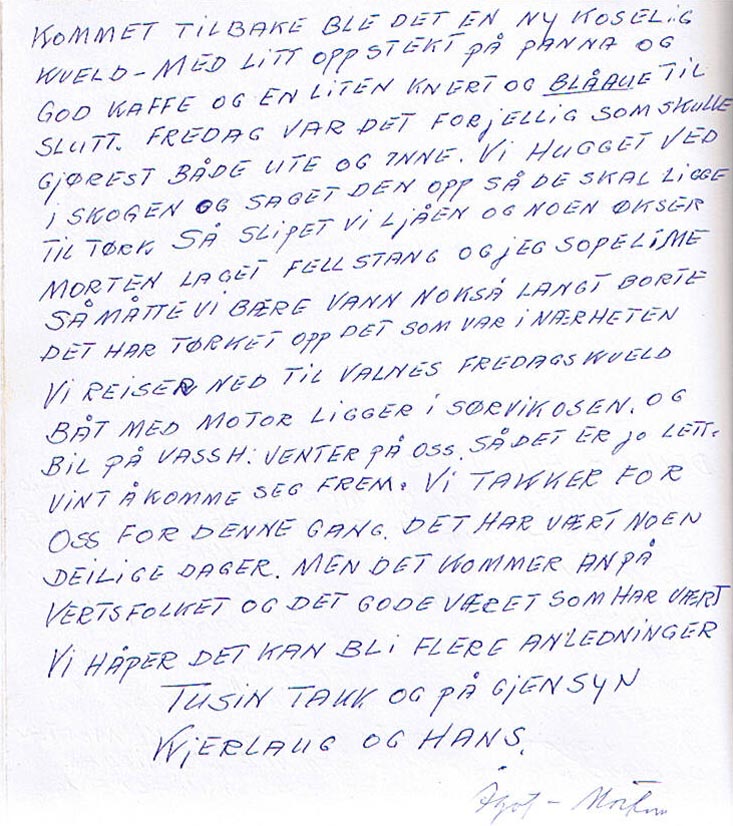 KOMMET TILBAKE BLE DET EN NY KOSELIG
KVELD - MED LITT OPPSTEKT PÅ PANNA OG
GOD KAFFE OG EN LITEN KNERT OG BLÅAUE TIL
SLUTT. FREDAG VAR DET FORJELLIG SOM SKULLE
GJØREST BÅDE UTE OG INNE. VI HUGGET VED
I SKOGEN OG SAGET DEN OPP SÅ DE SKAL LIGGE
TIL TØRK SÅ SLIPET VI LJÅEN OG NOEN ØKSER
MORTEN LAGET FELLSTANG OG JEG SOPELIME
SÅ MÅTTE VI BÆRE VANN NOKSÅ LANGT BORTE
DET HAR TØRKET OPP DET SOM VAR I NÆRHETEN
VI REISER NED TIL VALNES FREDAGSKVELD
BÅT MED MOTOR LIGGER I SØRVIKOSEN. OG
BIL PÅ VASSH: VENTER PÅ OSS. SÅ DET ER JO LETT-
VINT Å KOMME SEG FREM. VI TAKKER FOR
OSS FOR DENNE GANG. DET HAR VÆRT NOEN
DEILIGE DAGER. MEN DET KOMMER AN PÅ
VERTSFOLKET OG DET GODE VÆRET SOM HAR VÆRT
VI HÅPER DET KAN BLI FLERE ANLEDNINGER
TUSIN TAKK OG PÅ GJENSYN
KJERLAUG OG HANS.
Ågot - Morten